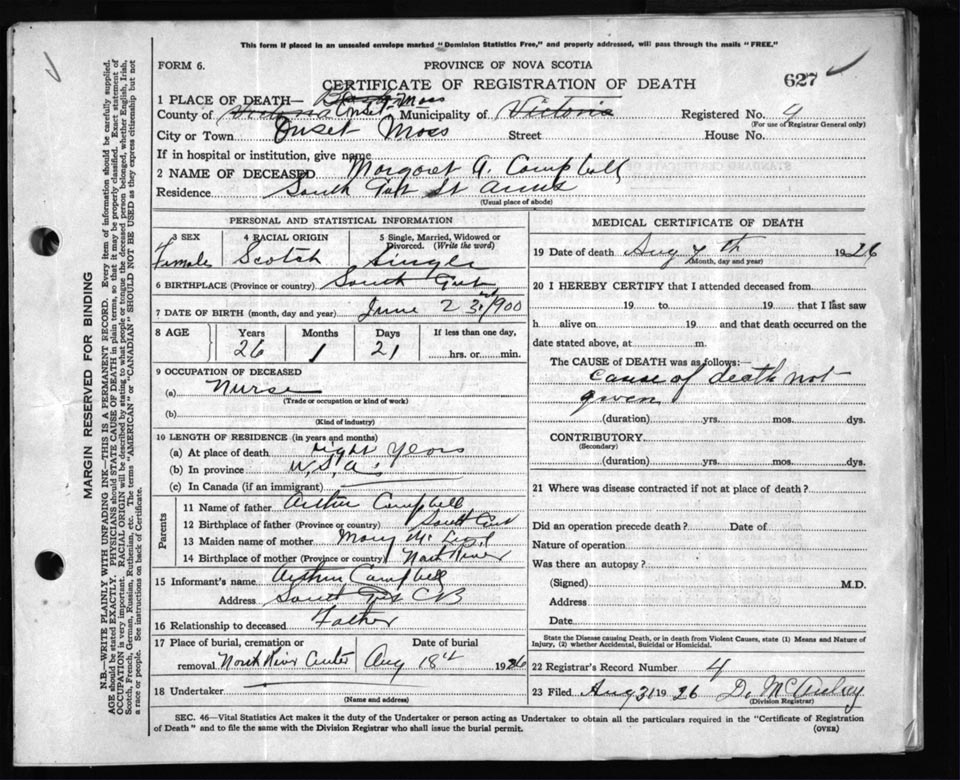 This form if placed in an unsealed envelope marked "Dominion Statistics Free," and properly addressed, will pass through the mails "FREE."
FORM 6.
PROVINCE OF NOVA SCOTIA
CERTIFICATE OF REGISTRATION OF DEATH
627
1 PLACE OF DEATH— Onset Mass
County of Victoria Municipality of Victoria Registered No. 4
(For use of Registrar General only)
City or Town Onset Mass Street House No.
If in hospital or institution, give name
2 NAME OF DECEASED Margaret A. Campbell
Residence South Gut St Anns
(Usual place of abode)
MARGIN RESERVED FOR BINDING
N.B.—WRITE PLAINLY WITH UNFADING INK—THIS IS A PERMANENT RECORD. Every item of information should be carefully supplied.
AGE should be stated EXACTLY. PHYSICIANS should STATE CAUSE OF DEATH in plain terms, so that it may be properly classified. Exact statement of
OCCUPATION is very important. RACIAL ORIGIN will be described by stating to what people or tongue the deceased person belonged, whether English, Irish,
Scotch, French, German, Russian, Ruthenian, etc. The terms "AMERICAN" or "CANADIAN" SHOULD NOT BE USED as they express citizenship but not
a race or people. See instructions on back of Certificate.
PERSONAL AND STATISTICAL INFORMATION
3 SEX
Female
4 RACIAL ORIGIN
Scotch
5 Single, Married, Widowed or
Divorced. (Write the word)
Single
6 BIRTHPLACE (Province or country) South Gut
7 DATE OF BIRTH (month, day and year) June 23rd 1900
8 AGE
Years Months Days If less than one day,
26 1 21 hrs. or min.
9 OCCUPATION OF DECEASED
(a) Nurse
(Trade or occupation or kind of work)
(b)
(Kind of industry)
10 LENGTH OF RESIDENCE (in years and months)
(a) At place of death eight years
(b) In province U.S.A.
(c) In Canada (if an immigrant)
Parents
11 Name of father Arthur Campbell
12 Birthplace of father (Province or country) South Gut
13 Maiden name of mother Mary McLeod
14 Birthplace of mother (Province or country) North River
15 Informant's name Arthur Campbell
Address South Gut CB
16 Relationship to deceased Father
17 Place of burial, cremation or Date of burial
removal North River Center Aug 18th 1926
18 Undertaker
(Name and address)
MEDICAL CERTIFICATE OF DEATH
19 Date of death Aug 7th 1926
(Month, day and year)
20 I HEREBY CERTIFY that I attended deceased from
19 to 19 that I last saw
h alive on 19 and that death occurred on the
date stated above, at m.
The CAUSE of DEATH was as follows:—
cause of death not
given
(duration) yrs. mos. dys.
CONTRIBUTORY
(Secondary)
(duration) yrs. mos. dys.
21 Where was disease contracted if not at place of death?
Did an operation precede death? Date of
Nature of operation
Was there an autopsy?
(Signed) M.D.
Address
Date
State the Disease causing Death, or in death from Violent Causes, state (1) Means and Nature of
Injury, (2) whether Accidental, Suicidal or Homicidal.
22 Registrar's Record Number 4
23 Filed Aug 31 1926 D. McAulay
(Division Registrar)
SEC. 46—Vital Statistics Act makes it the duty of the Undertaker or person acting as Undertaker to obtain all the particulars required in the "Certificate of Registration
of Death" and to file the same with the Division Registrar who shall issue the burial permit.
(OVER)